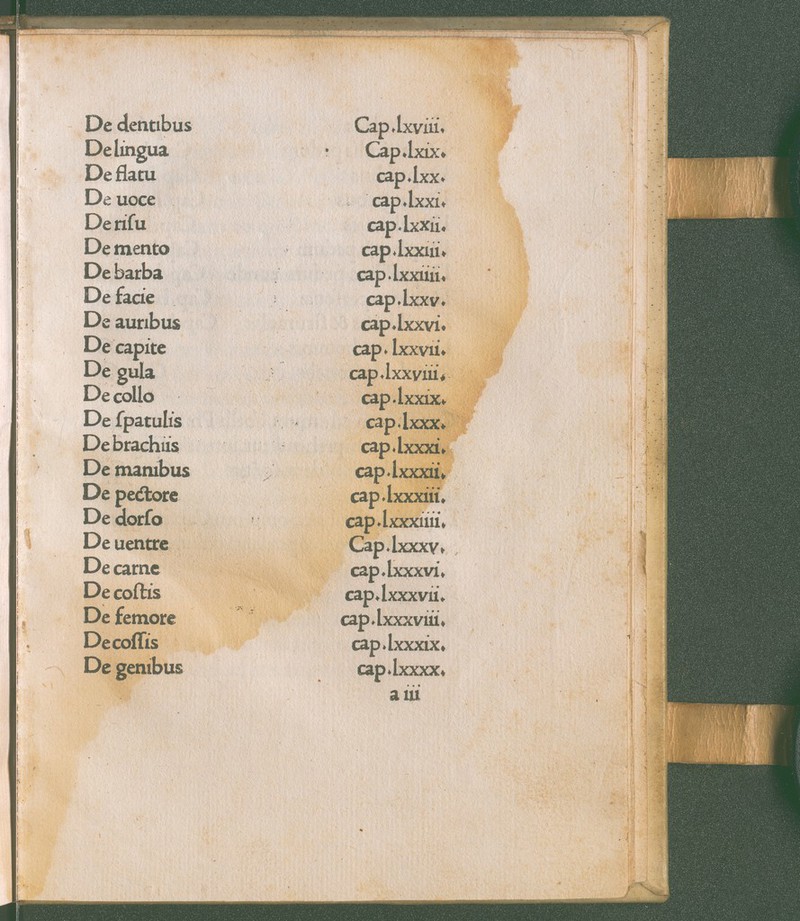 De dentibus Cap.lxviii.
De lingua Cap.lxix.
De flatu cap.lxx.
De uoce cap.lxxi.
De riſu cap.lxxii.
De mento cap.lxxiii.
De barba cap.lxxiiii.
De facie cap.lxxv.
De auribus cap.lxxvi.
De capite cap. lxxvii.
De gula cap.lxxviii.
De collo cap.lxxix.
De ſpatulis cap.lxxx.
De brachiis cap.lxxxi.
De manibus cap.lxxxii.
De pectore cap.lxxxiii.
De dorſo cap.lxxxiiii.
De uentre Cap.lxxxv.
De carne cap.lxxxvi.
De coſtis cap.lxxxvii.
De femore cap.lxxxviii.
De coſſis cap.lxxxix.
De genibus cap.lxxxx.
a iii